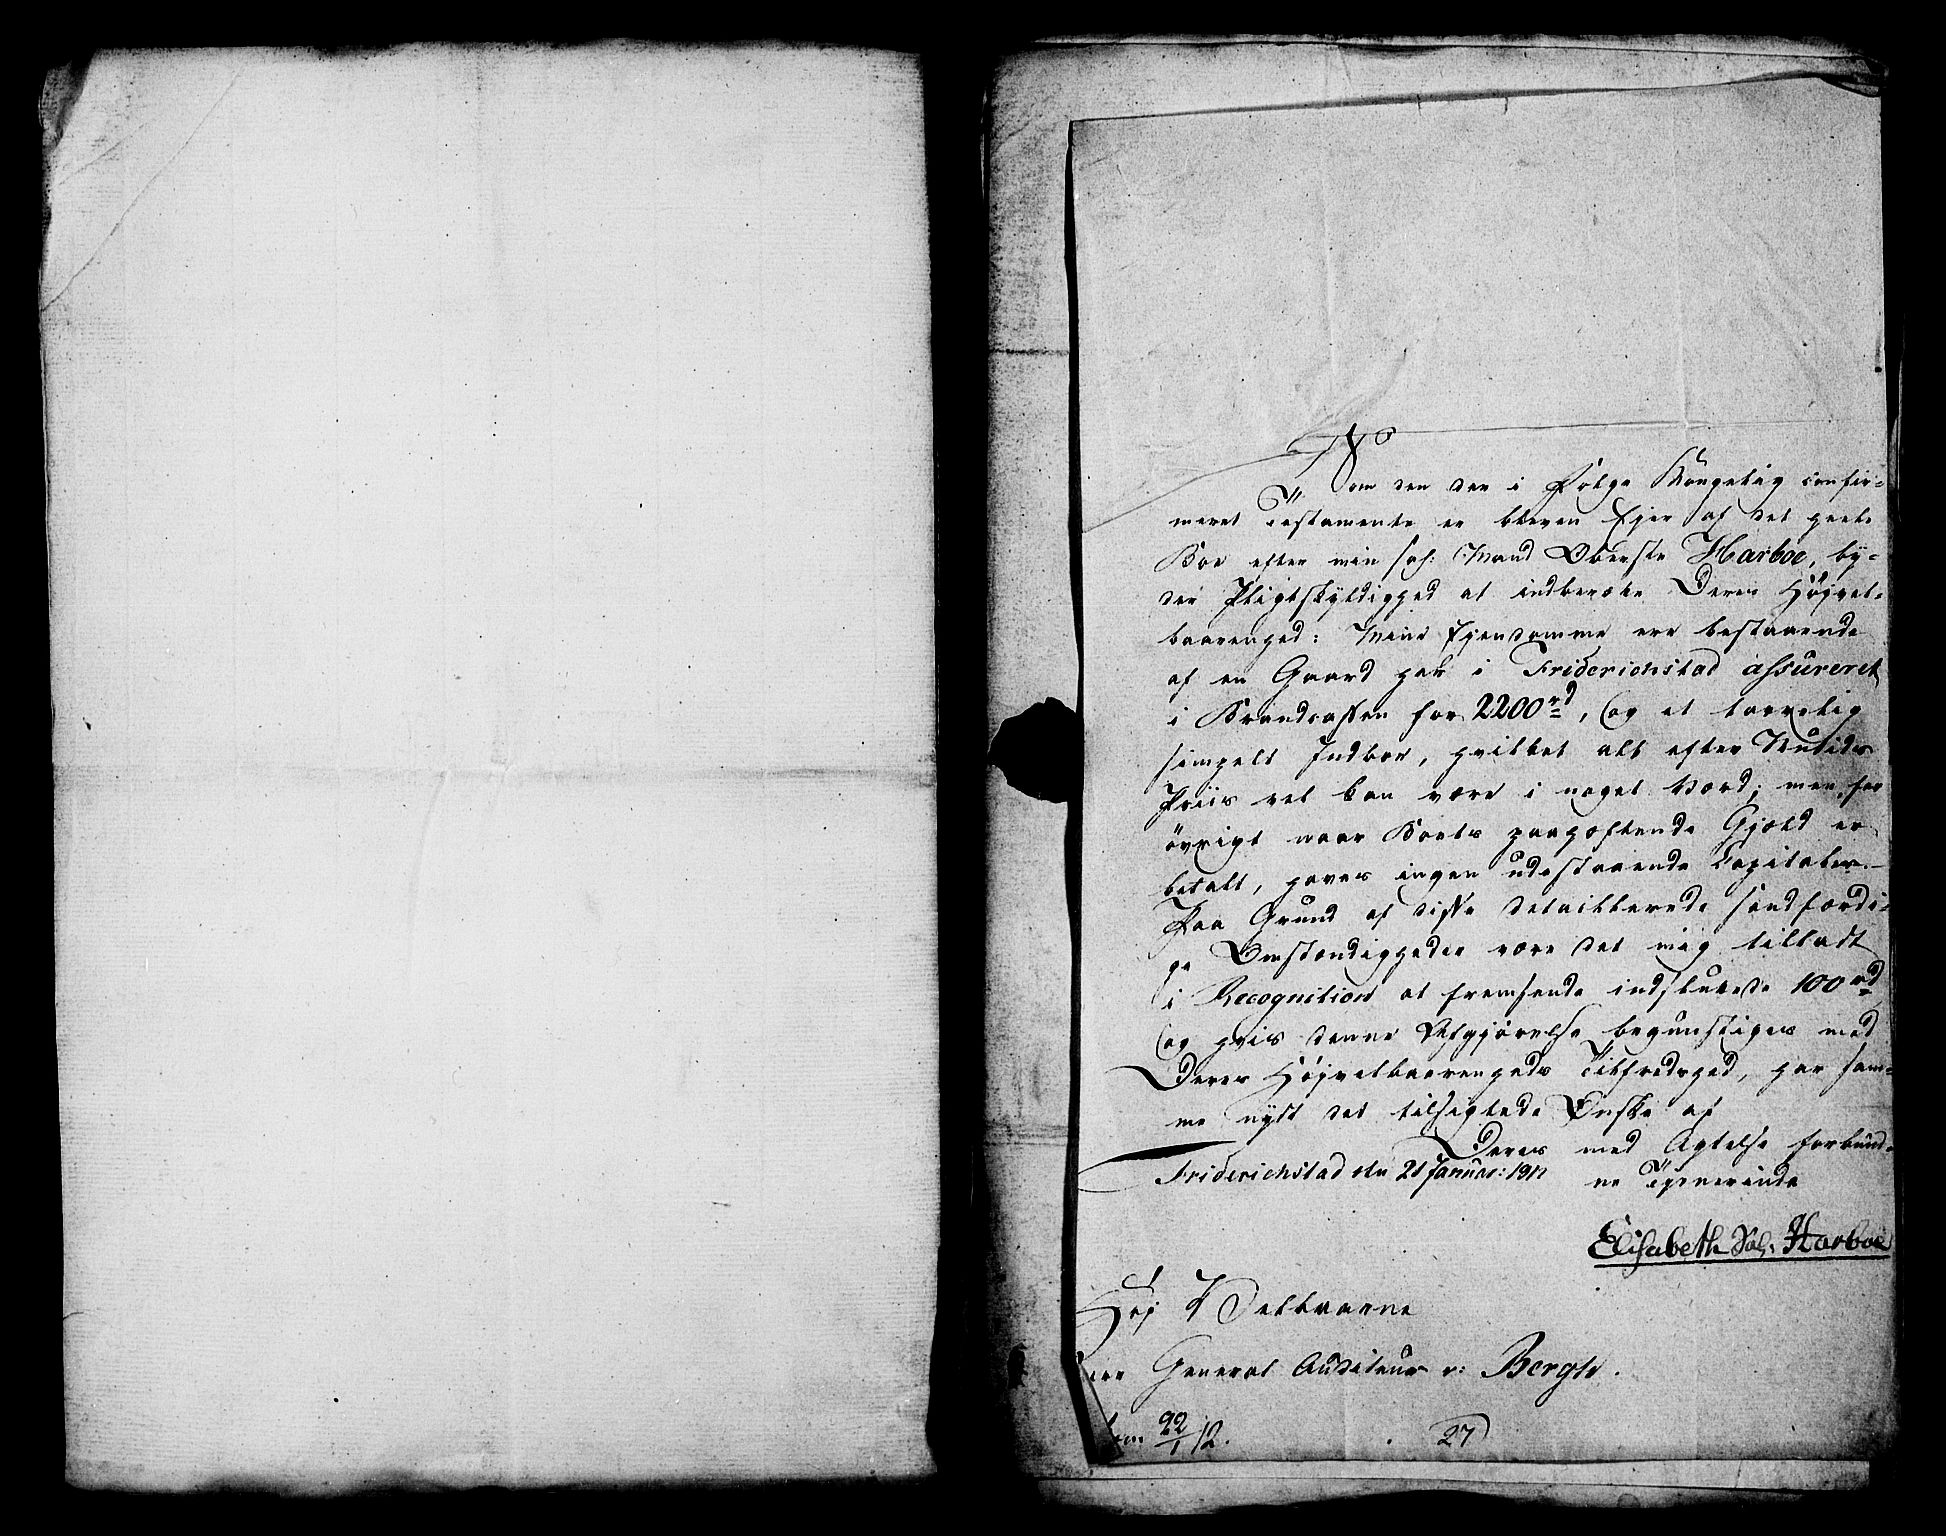 No
Som den der i Følge Kongelig confir-
meret Testamente er bleven Ejer af det heele
Boe efter min Sal: Mand Oberste Harboe, by-
der Pligtskyldighed at indberætte Deres Højvel-
baarenhed: Mine Ejendomme ere bestaaende
af en Gaard her i Friderichstad assureret
i Brandcassen for 2200 rd, og et tarvelig
simpelt Indboe, hvilket alt efter Nutids
Priis vel kan være i noget Værd; men for
övrigt naar Boets paahæftende Gjæld er
betalt, haves ingen udestaaende Capitaler.-
Paa Grund af disse detaillerede sandfærdi-
ge Omstændigheder være det mig tilladt
i Recognition at fremsende indsluttede 100 rd
og hvis denne Afgjørelse begunstiges med
Deres Højvelbaarenheds Tilfredshed, har sam-
me nydt det tilsigtede Ønske af
Deres med Agtelse forbund-
Friderichstad den 21 Januar: 1812
ne Tjenerinde
Elisabeth Sal: Harboe
Høj Velbaarne
Herr General Auditeur v: Bergh.
22/1 12.
27